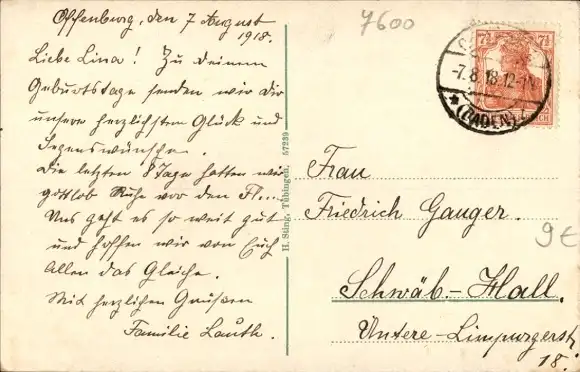 Offenburg, den 7 August
1918.
Liebe Lina! Zu Deinem
Geburtstage senden wir dir
unsere herzlichsten Glück und
Segenswünsche.
Die letzten 8 Tage hatten wir
gottlob Ruhe vor den Fl....
Uns geht es so weit gut
und hoffen wir von Euch
Allen das Gleiche.
Mit herzlichen Grüßen
Familie Lauth.
H. Sting, Tübingen, 57239
7600
7½ 7½
-7.8.18.12-1N
* (BADEN)
Frau
Friedrich Gauger.
9€
Schwäb.-Hall.
Untere-Limpurgerstr.
18.